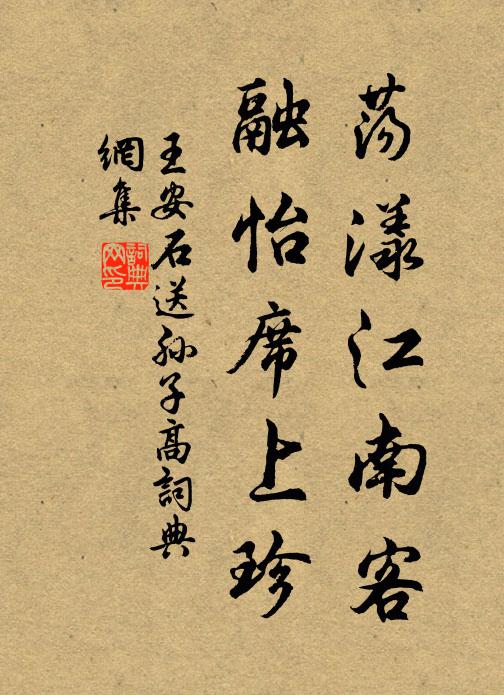 荡漾江南客
融怡席上珍
王安石送孙子高詞典
網集
詞典網印